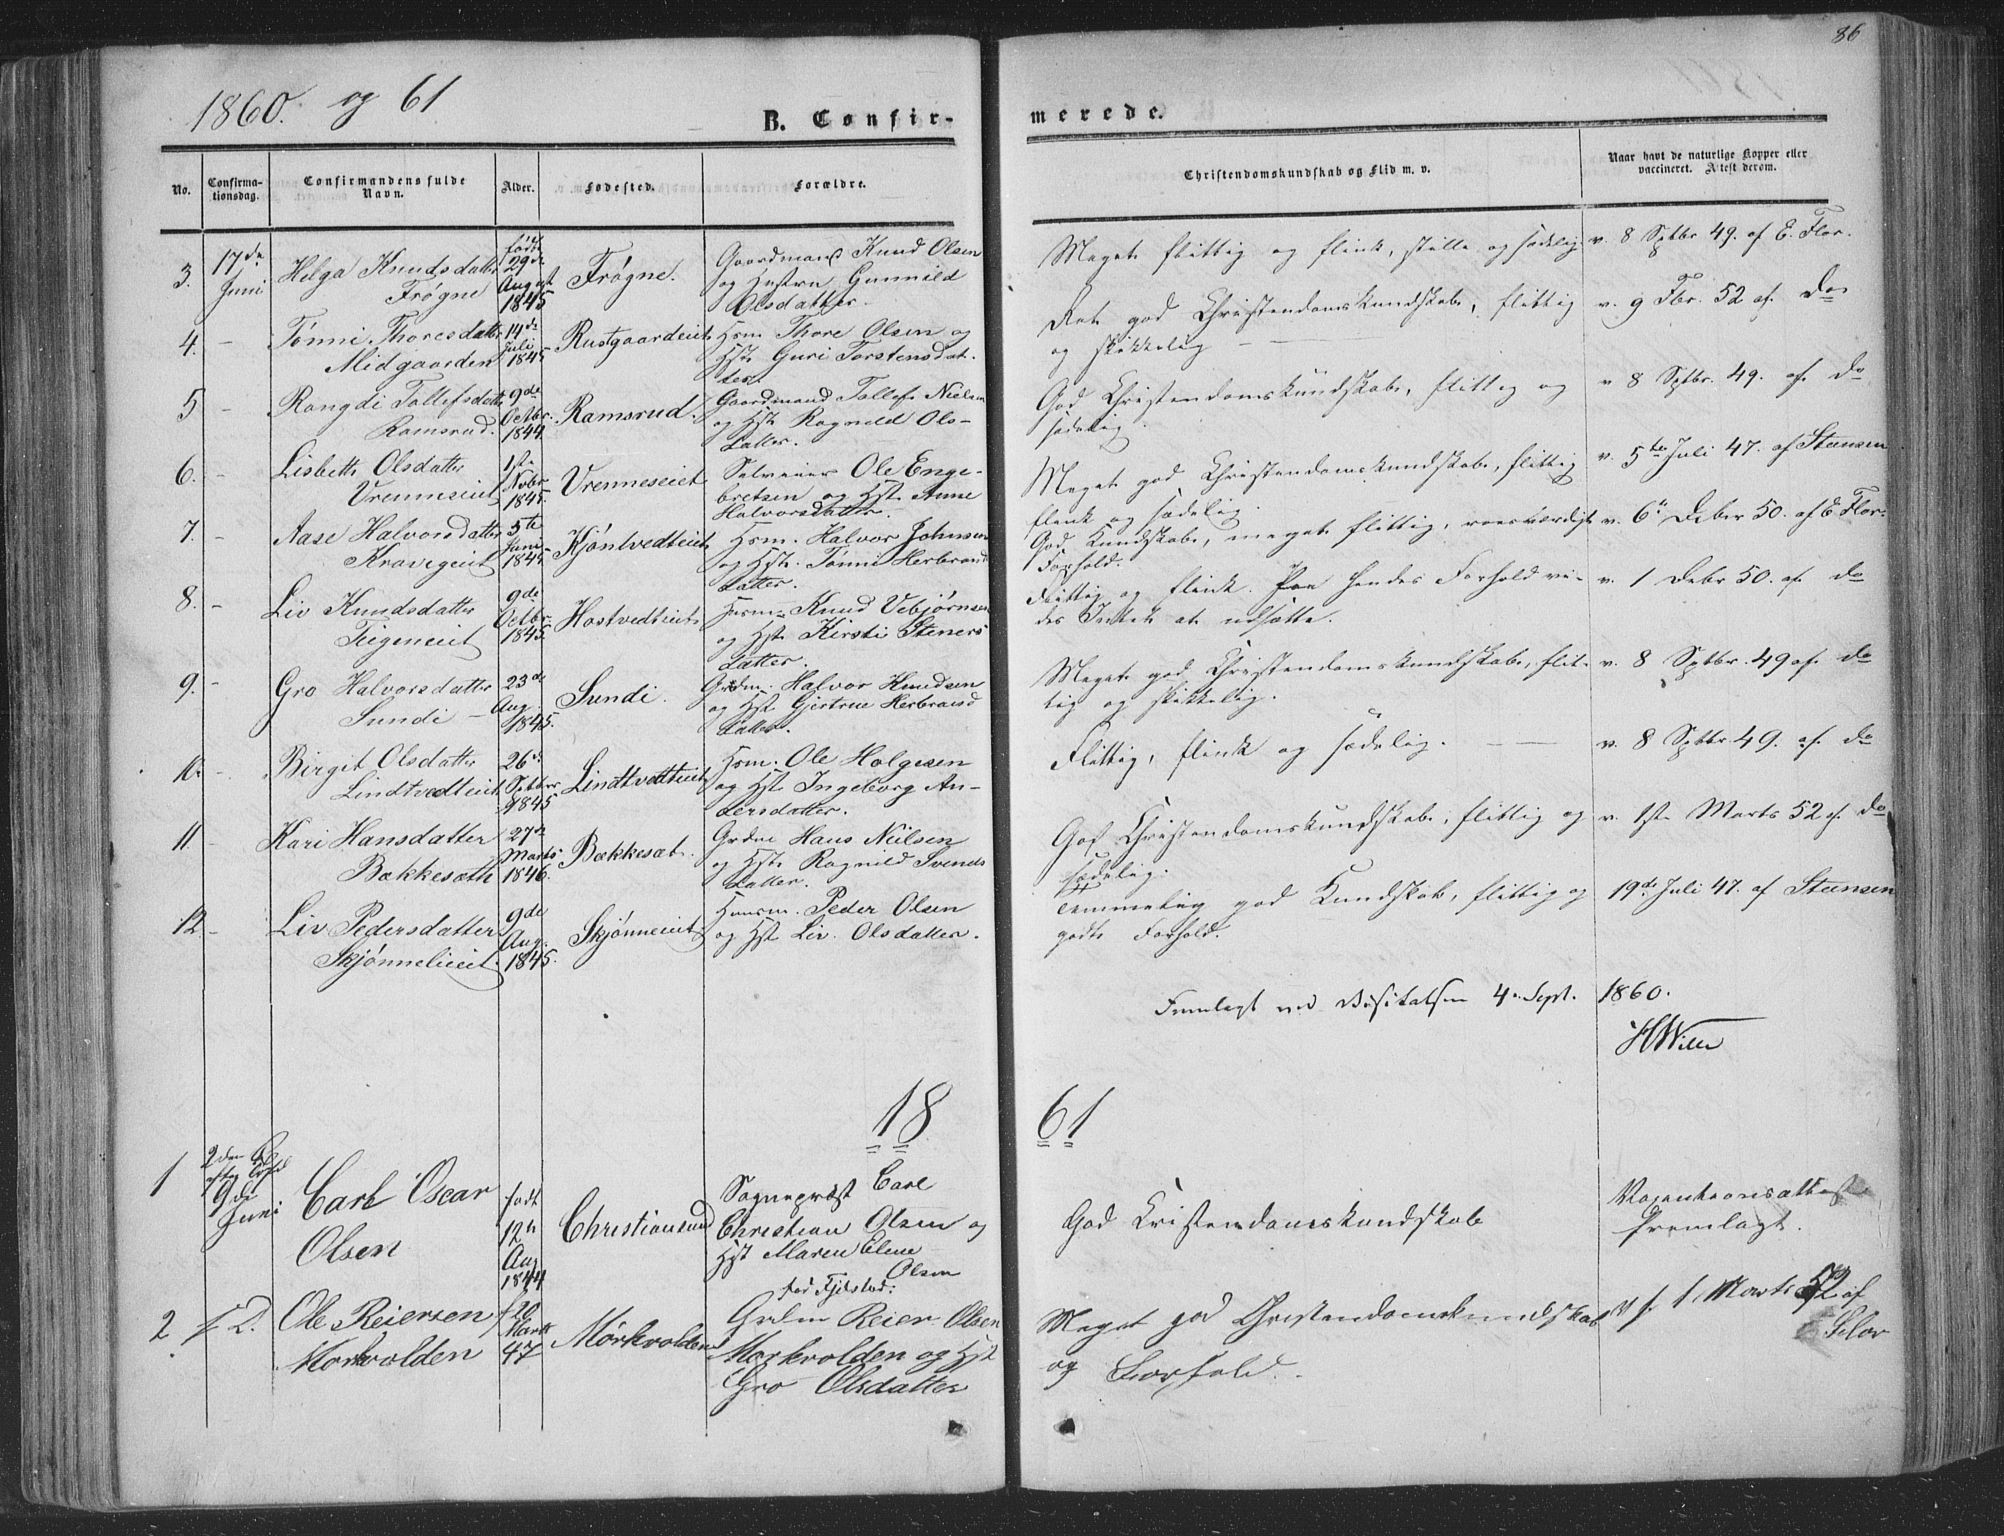 86
1860. og 61
B. Confir-
merede.
No.
Confirma-
tionsdag.
Confirmandens fulde
Navn.
Alder.
Fødested.
Forældre.
Christendomskundskab og Flid m. v.
Naar havt de naturlige Kopper eller
vaccineret. Attest derom.
3. 17de Juni
Helga Knudsdatter
Frøgne
født 29de August 1845
Frøgne.
Gaardmand Knud Olsen
og Hustru Gunnild
Olsdatter.
Meget flittig og flink, stille og sædelig
v. 8 Sptbr 49. af E. Flor.
4. -
Tønni Thoresdatter
Midgaarden
14de Juli 1845
Rustgaardeiet
Hsm. Thore Olsen og
Hst. Guri Torstensdat-
ter.
Ret god Christendomskundskab, flittig
og skikkelig
v. 9 Fbr. 52 af do
5 -
Rangdi Tollefsdatter
Ramsrud.
9de Octbr. 1844
Ramsrud.
Gaardmand Tollef Nielsen
og Hst. Ragnild Ols-
datter.
God Christendomskundskab, flittig og
sædelig.
v 8 Sptbr. 49. af do
6. -
Lisbeth Olsdatter
Vrenneseiet
1ste Novbr 1845.
Vrenneseiet
Selveier Ole Enge-
bretsen og Hst. Anne
Halvorsdatter.
Meget god Christendomskundskab, flittig
flink og sædelig.
v. 5te Juli 47. af Steensen
7. -
Aase Halvorsdatter
Kravigeiet
5te Juni 1845
Kjøntvedteiet
Hsm. Halvor Johnsen
og Hst. Tønni Herbrands
datter.
God Kundskab, meget flittig, roesværdigt
Forhold.
v. 6te Debr 50. af E Flor.
8. -
Liv Knudsdatter
Teigeneiet
9de Octbr. 1845.
Hostvedteiet
Husm. Knud Vebjørnsen
og Hst. Kirsti Steners
datter.
Flittig og flink. Paa hendes Forhold vi-
des Intet at udsætte.
v. 1 Debr 50. af do
9. -
Gro Halvorsdatter
Sundi -
23de Aug. 1845.
Sundi.
Grdm. Halvor Knudsen
og Hst Gjertrue Herbrands
datter.
Meget god Christendomskundskab, flit-
tig og skikkelig.
v. 8 Sptbr. 49 af. do
10. -
Birgit Olsdatter
Lindtvedteiet
26de Octbr 1845
Lindtvedteiet
Hsm. Ole Holgesen
og Hst Ingeborg An-
dersdatter.
Flittig, flink og sædelig.
v. 8 Sptbr 49. af. do
11 -
Kari Hansdatter
Bækkesæth
27de Marts 1846.
Bækkesæt.
Grdm Hans Nielsen
og Hst. Ragnild Svends
datter.
God Christendomskundskab, flittig og
sædelig.
v. 1ste Marts 52 af. do
12 -
Liv Pedersdatter
Skjønnelieiet.
9de Aug. 1845.
Skjønneeiet
Huusm. Peder Olsen
og Hst Liv Olsdatter.
Temmelig god Kundskab, flittig og
godt Forhold.
19de Juli 47. af Steensen
Fremlagt ved Visitatsen 4. Sept. 1860.
HWille
18 61
1
9de Juni
Carl Oscar
Olsen
født 12te Aug 1844
Christiansund
Sognepræst Carl
Christian Olsen og
Hst Maren Elene
Olsen
fød Fjelstad.
God Kristendomskundskab
Vaccinationsattest
fremlagt.
2
Ole Reiersen
Mørkvolden
f 20 Marts 47
Mørkvolden
Grdm Reier Olsen
Mørkvolden og Hst
Gro Olsdatter
Meget god Christendomskundskab
og Forhold.
1 Marts 52 af
Flor